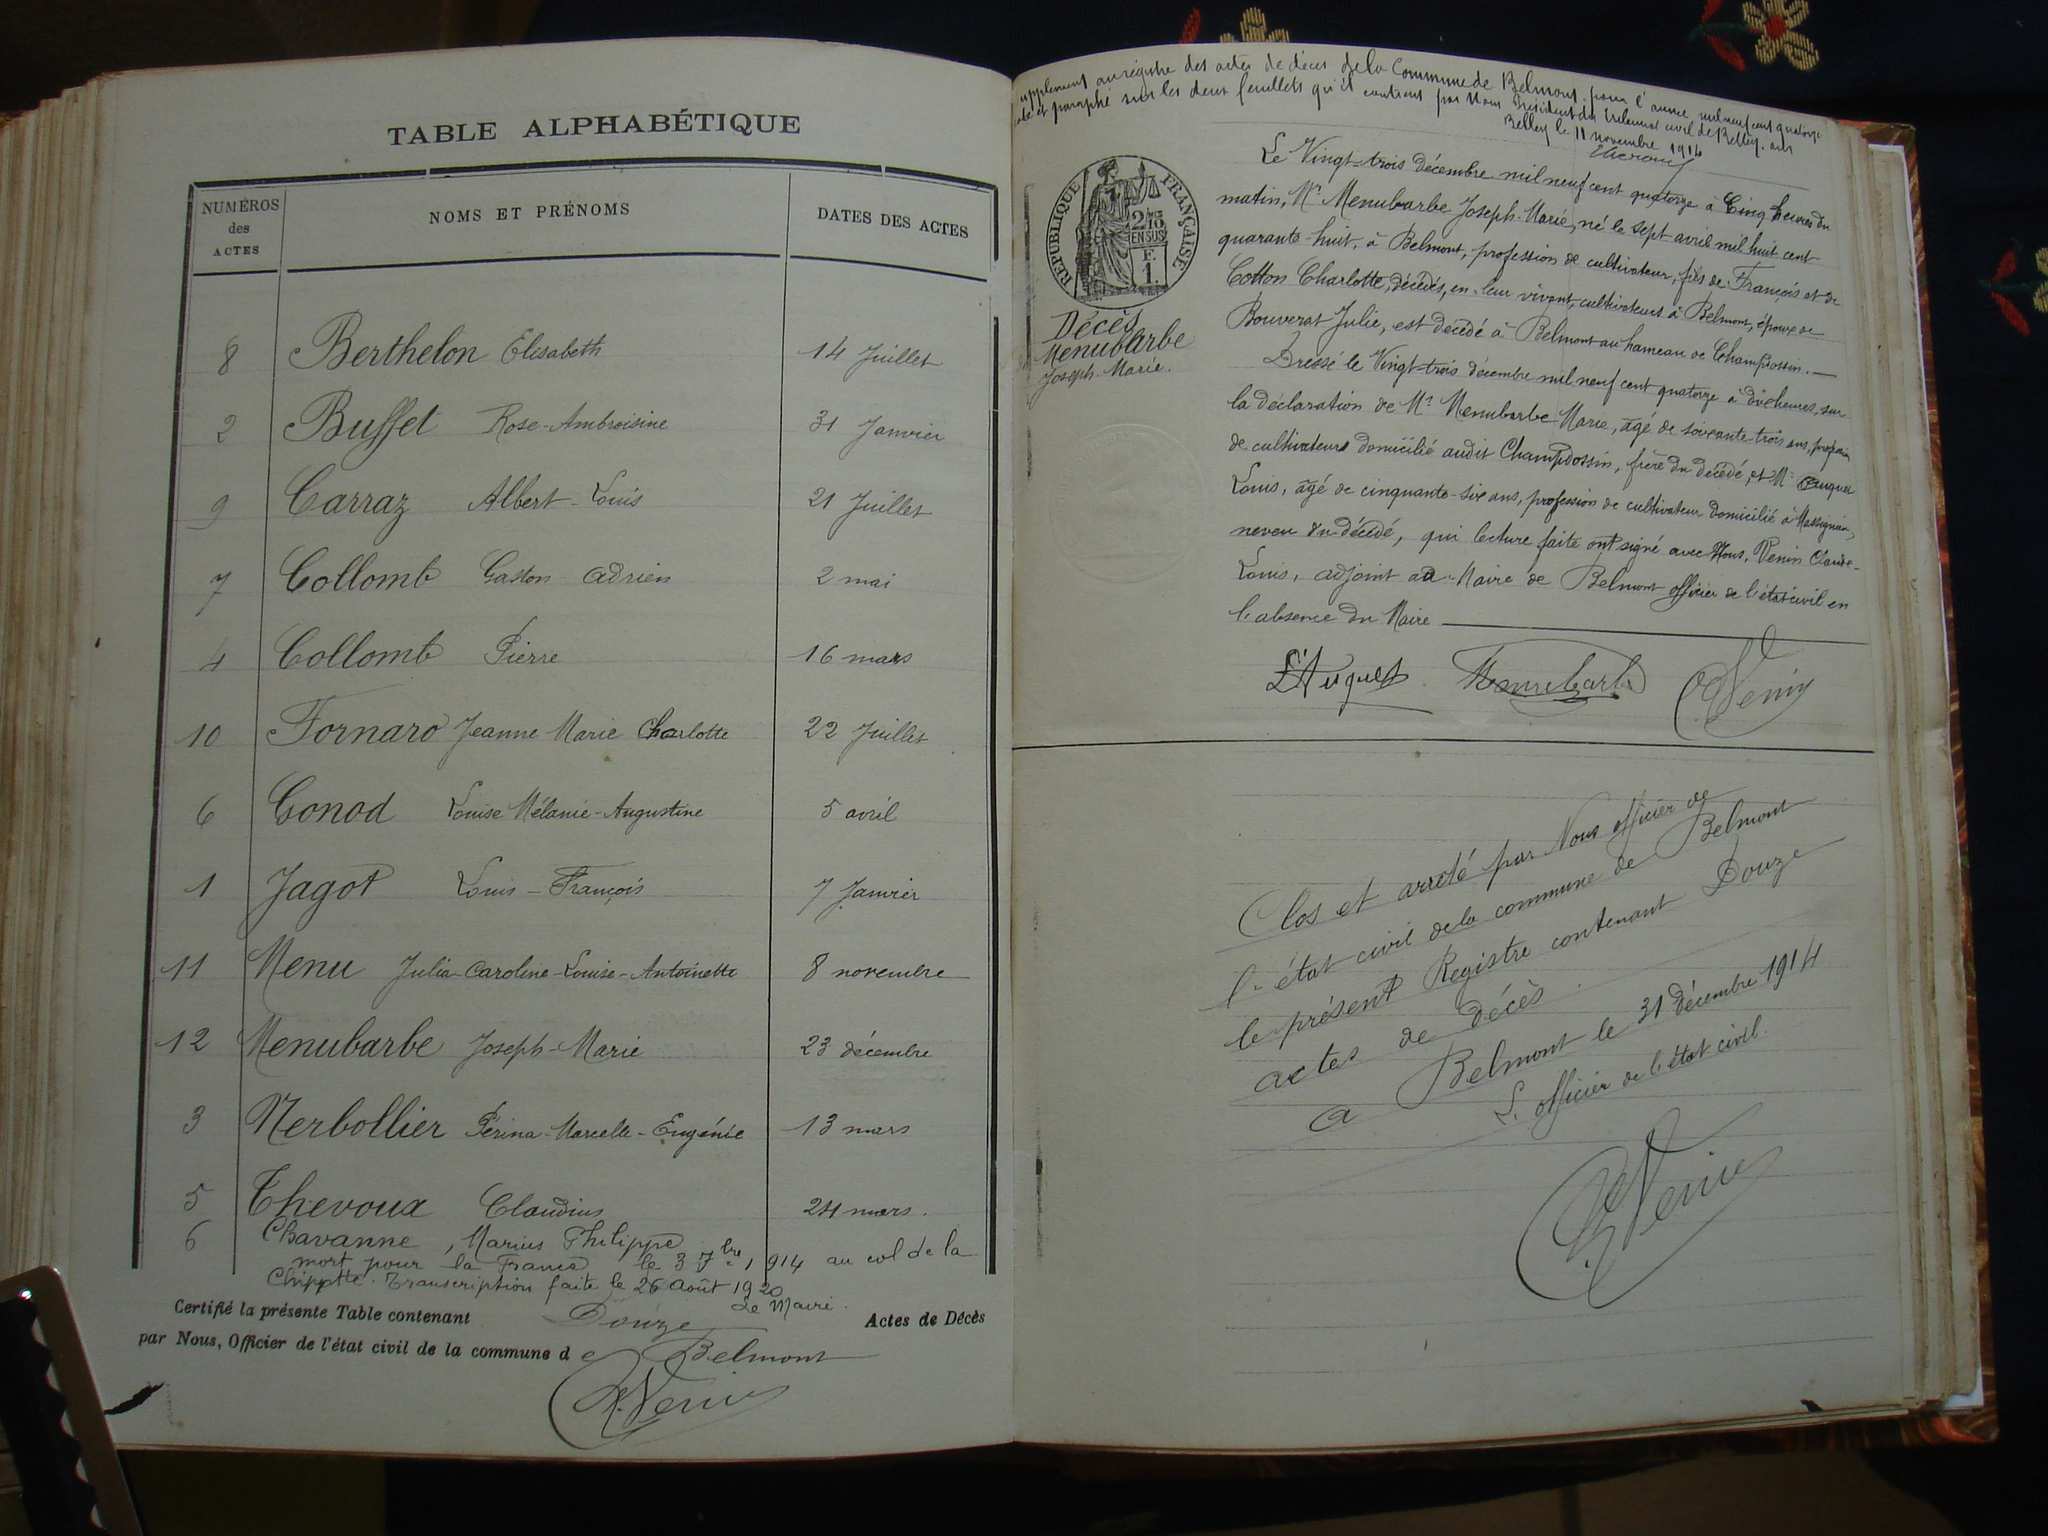 TABLE ALPHABÉTIQUE
NUMÉROS des ACTES
NOMS ET PRÉNOMS
DATES DES ACTES
8 Berthelon Elisabeth 14 Juillet
2 Buffet Rose-Ambroisine 31 Janvier
9 Carraz Albert-Louis 21 Juillet
7 Collomb Gaston Adrien 2 mai
4 Collomb Pierre 16 mars
10 Fornaro Jeanne Marie Charlotte 22 Juillet
6 Gonod Louise Mélanie-Augustine 5 avril
1 Jagot Louis-François 7 Janvier
11 Menu Julia-Caroline-Louise-Antoinette 8 novembre
12 Menubarbe Joseph-Marie 23 décembre
3 Nerbollier Périna-Marcelle-Eugénie 13 mars
5 Thevoux Claudius 24 mars.
6 Chavanne, Marius Philippe
mort pour la France le 3 7bre 1914 au col de la
Chipotte. Transcription faite le 26 Août 1920
Le Maire.
Certifié la présente Table contenant Douze Actes de Décès
par Nous, Officier de l'état civil de la commune de Belmont
upplement au régistre des actes de décès de la Commune de Belmont pour l'année mil neuf cent quatorze
coté et paraphé sur les deux feuillets qu'il contient par Nous Président du tribunal civil de Belley.
Belley le 11 novembre 1914
RÉPUBLIQUE FRANÇAISE
2/10 EN SUS
F. 1.
Décès
Menubarbe
Joseph-Marie.
Le Vingt-trois décembre mil neuf cent quatorze à Cinq heures du
matin, Mr Menubarbe Joseph-Marie, né le sept avril mil huit cent
quarante-huit, à Belmont, profession de cultivateur, fils de François et de
Cotton Charlotte, décédés, en leur vivant, cultivateurs à Belmont, époux de
Bouverat Julie, est décédé à Belmont au hameau de Champdossin.
Dressé le Vingt-trois décembre mil neuf cent quatorze à dix heures, sur
la déclaration de Mr Menubarbe Marie, âgé de soixante-trois ans, profession
de cultivateur domicilié audit Champdossin, frère du décédé, et Mr Auguet
Louis, âgé de cinquante-six ans, profession de cultivateur domicilié à Massignieu,
neveu du décédé, qui lecture faite ont signé avec Nous, Venin Claude-
Louis, adjoint au Maire de Belmont officier de l'état civil en
l'absence du Maire
L Auguet Menubarbe Venin
Clos et arrêté par Nous officier de
l'état civil de la commune de Belmont
le présent Registre contenant Douze
actes de décès.
A Belmont le 31 décembre 1914
L. officier de l'état civil.